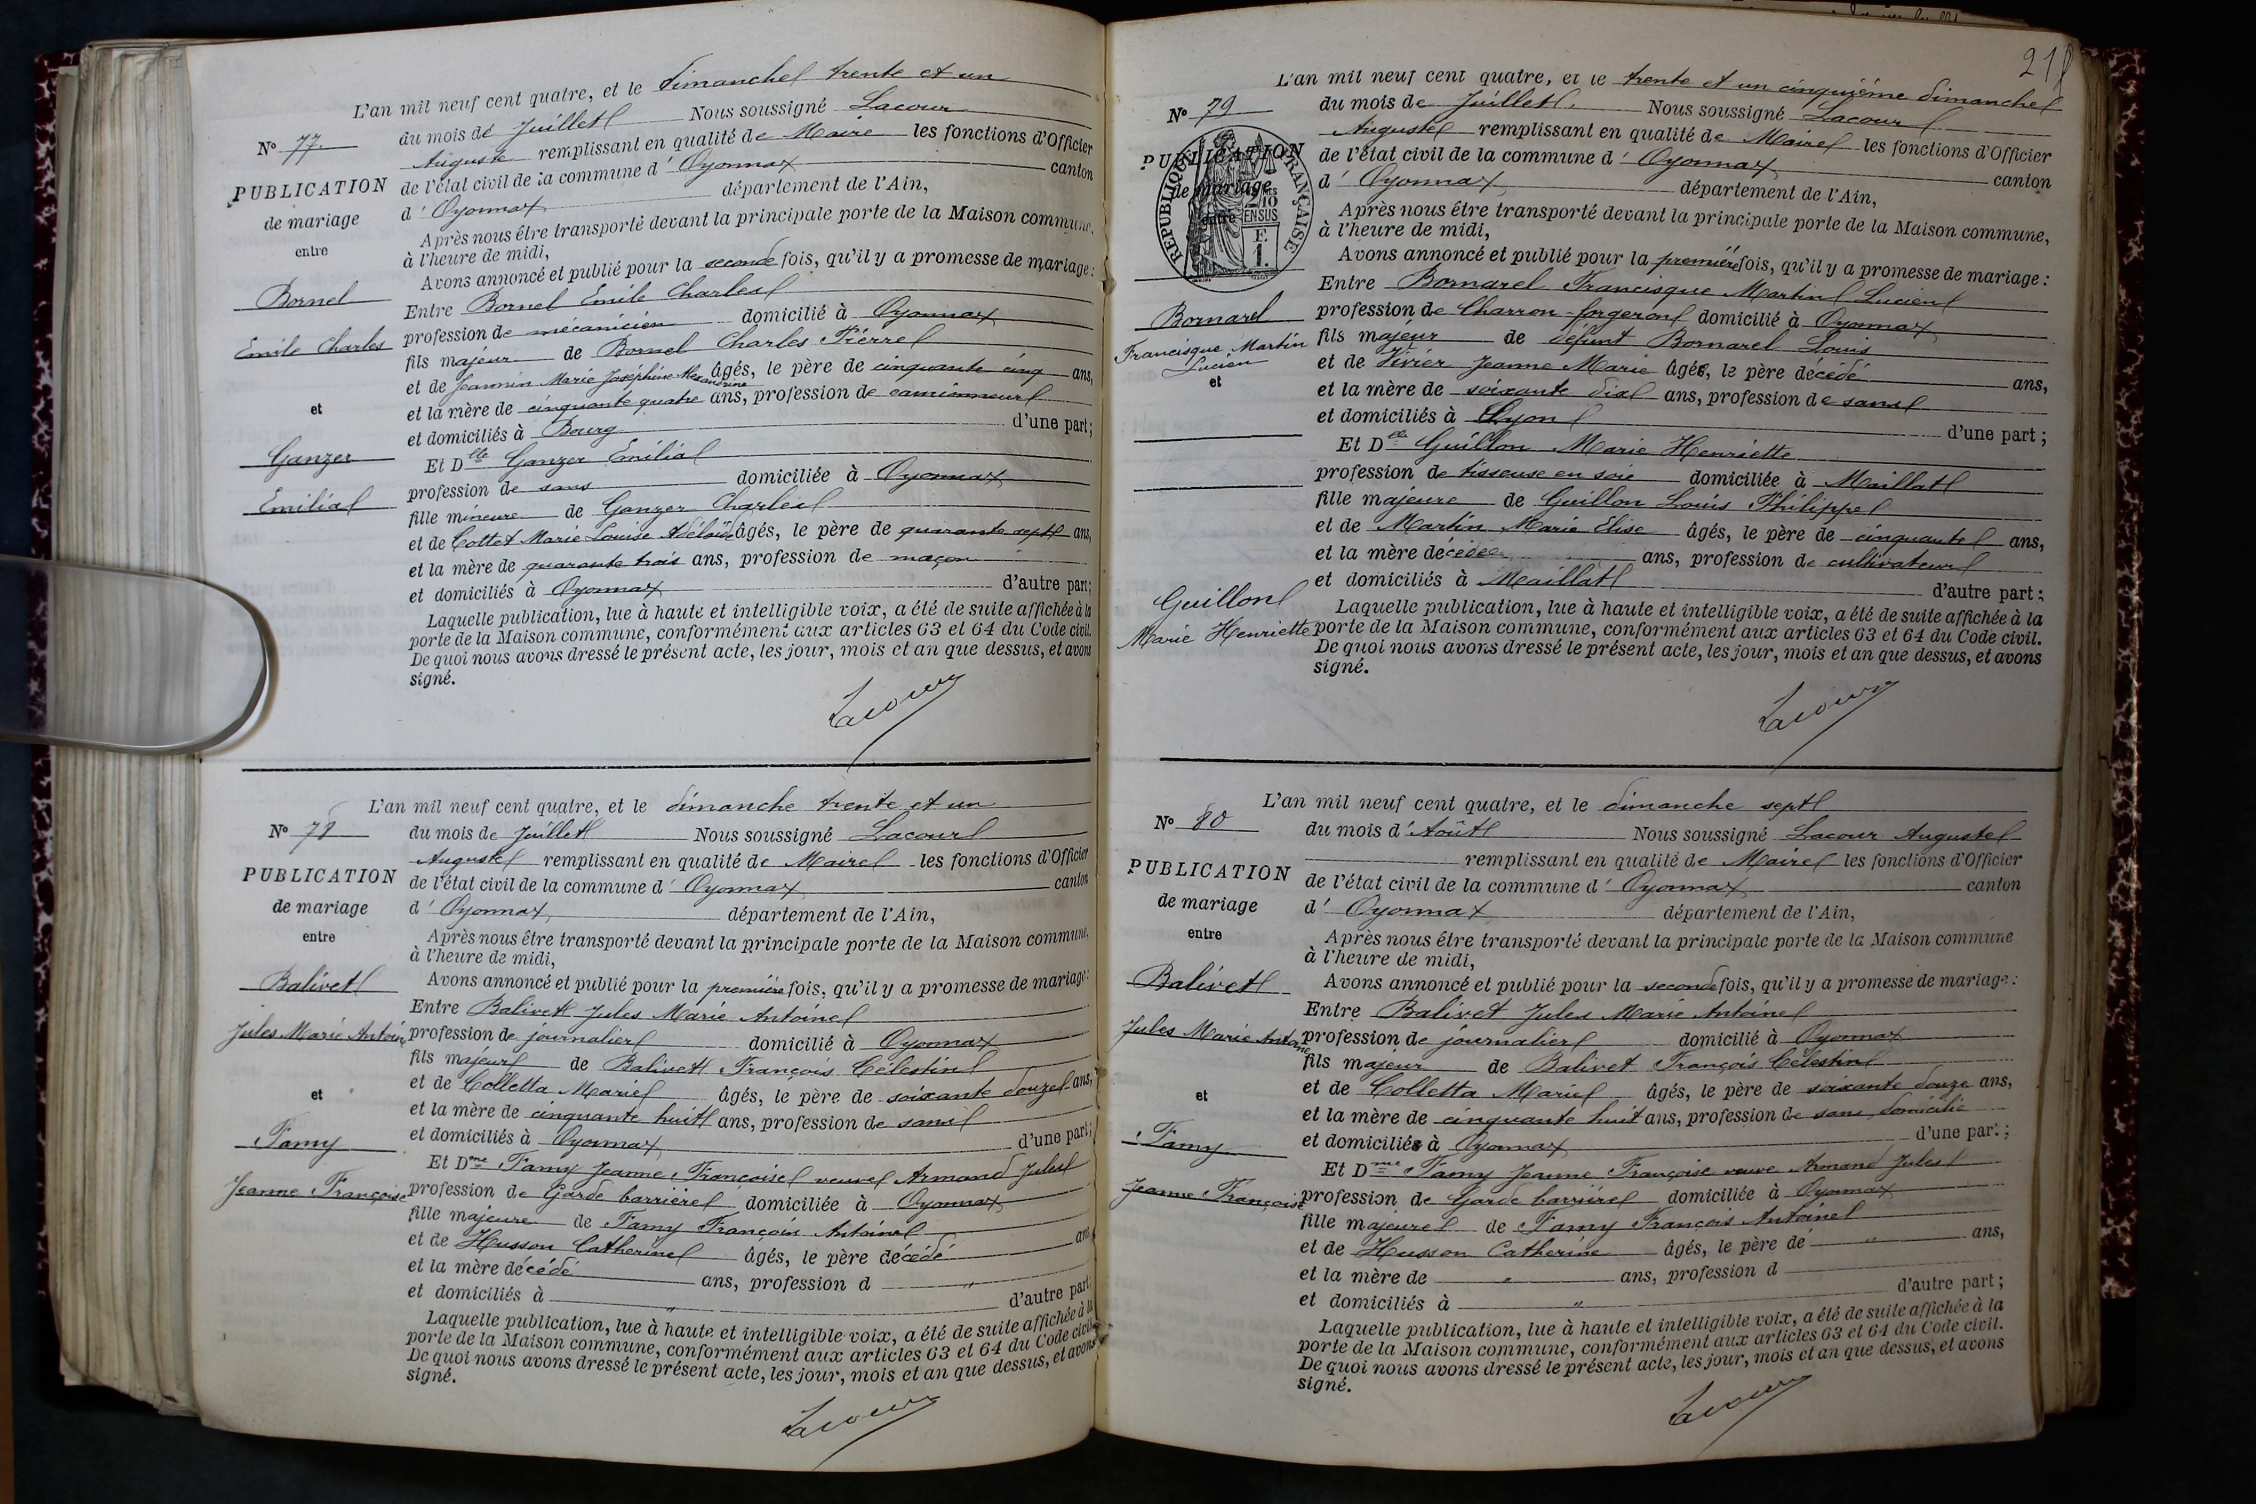 L'an mil neuf cent quatre, et le dimanche trente et un
No 77.
du mois de Juillet Nous soussigné Lacour
Auguste remplissant en qualité de Maire les fonctions d'Officier
PUBLICATION
de l'état civil de la commune d' Oyonnax canton
de mariage
d' Oyonnax département de l'Ain,
entre
Après nous être transporté devant la principale porte de la Maison commune,
à l'heure de midi,
Avons annoncé et publié pour la seconde fois, qu'il y a promesse de mariage :
Bornel
Entre Bornel Emile Charles
Emile Charles
profession de mécanicien domicilié à Oyonnax
fils majeur de Bornel Charles Pierre
et de Jeannin Marie Joséphine Alexandrine âgés, le père de cinquante cinq ans,
et
et la mère de cinquante quatre ans, profession de camionneur
et domiciliés à Bourg d'une part ;
Ganzer
Et Dlle Ganzer Emilia
Emilia
profession de sans domiciliée à Oyonnax
fille mineure de Ganzer Charles
et de Cottet Marie Louise Adélaïde âgés, le père de quarante sept ans,
et la mère de quarante trois ans, profession de maçon
et domiciliés à Oyonnax d'autre part ;
Laquelle publication, lue à haute et intelligible voix, a été de suite affichée à la
porte de la Maison commune, conformément aux articles 63 et 64 du Code civil.
De quoi nous avons dressé le présent acte, les jour, mois et an que dessus, et avons
signé.
Lacour
L'an mil neuf cent quatre, et le dimanche trente et un
No 78
du mois de Juillet Nous soussigné Lacour
Auguste remplissant en qualité de Maire les fonctions d'Officier
PUBLICATION
de l'état civil de la commune d' Oyonnax canton
de mariage
d' Oyonnax département de l'Ain,
entre
Après nous être transporté devant la principale porte de la Maison commune,
à l'heure de midi,
Balivet
Avons annoncé et publié pour la première fois, qu'il y a promesse de mariage :
Entre Balivet Jules Marie Antoine
Jules Marie Antoine
profession de journalier domicilié à Oyonnax
fils majeur de Balivet François Célestin
et de Colletta Marie âgés, le père de soixante douze ans,
et
et la mère de cinquante huit ans, profession de sans
et domiciliés à Oyonnax d'une part ;
Famy
Et Dme Famy Jeanne Françoise veuve Armand Jules
Jeanne Françoise
profession de Garde barrière domiciliée à Oyonnax
fille majeure de Famy François Antoine
et de Husson Catherine âgés, le père décédé ans
et la mère décédé ans, profession d "
et domiciliés à " d'autre part
Laquelle publication, lue à haute et intelligible voix, a été de suite affichée à la
porte de la Maison commune, conformément aux articles 63 et 64 du Code civil.
De quoi nous avons dressé le présent acte, les jour, mois et an que dessus, et avons
signé.
Lacour
L'an mil neuf cent quatre, et le trente et un cinquième dimanche
No 79
du mois de Juillet. Nous soussigné Lacour
Auguste remplissant en qualité de Maire les fonctions d'Officier
PUBLICATION
de l'état civil de la commune d' Oyonnax canton
de mariage
d' Oyonnax département de l'Ain,
entre
RÉPUBLIQUE FRANÇAISE
2/10
EN SUS
F.
1.
Après nous être transporté devant la principale porte de la Maison commune,
à l'heure de midi,
Avons annoncé et publié pour la première fois, qu'il y a promesse de mariage :
Entre Bornarel Francisque Martin Lucien
Bornarel
profession de Charron-forgeron domicilié à Oyonnax
Francisque Martin
Lucien
fils majeur de défunt Bornarel Louis
et
et de Vivier Jeanne Marie âgés, le père décédé ans,
et la mère de soixante dix ans, profession de sans
et domiciliés à Lyon d'une part ;
Et Dlle Guillon Marie Henriette
profession de tisseuse en soie domiciliée à Maillat
fille majeure de Guillon Louis Philippe
et de Martin Marie Elise âgés, le père de cinquante ans,
et la mère décédée ans, profession de cultivateur
Guillon
et domiciliés à Maillat d'autre part :
Marie Henriette
Laquelle publication, lue à haute et intelligible voix, a été de suite affichée à la
porte de la Maison commune, conformément aux articles 63 et 64 du Code civil.
De quoi nous avons dressé le présent acte, les jour, mois et an que dessus, et avons
signé.
Lacour
L'an mil neuf cent quatre, et le dimanche sept
No 80
du mois d'Août Nous soussigné Lacour Auguste
remplissant en qualité de Maire les fonctions d'Officier
PUBLICATION
de l'état civil de la commune d' Oyonnax canton
de mariage
d' Oyonnax département de l'Ain,
entre
Après nous être transporté devant la principale porte de la Maison commune
à l'heure de midi,
Balivet
Avons annoncé et publié pour la seconde fois, qu'il y a promesse de mariage :
Entre Balivet Jules Marie Antoine
Jules Marie Antoine
profession de journalier domicilié à Oyonnax
fils majeur de Balivet François Célestin
et
et de Colletta Marie âgés, le père de soixante douze ans,
et la mère de cinquante huit ans, profession de sans domicilié
et domiciliés à Oyonnax d'une part ;
Famy
Et Dme Famy Jeanne Françoise veuve Armand Jules
Jeanne Françoise
profession de Garde barrière domiciliée à Oyonnax
fille majeure de Famy François Antoine
et de Husson Catherine âgés, le père de " ans,
et la mère de " ans, profession d
et domiciliés à " d'autre part ;
Laquelle publication, lue à haute et intelligible voix, a été de suite affichée à la
porte de la Maison commune, conformément aux articles 63 et 64 du Code civil.
De quoi nous avons dressé le présent acte, les jour, mois et an que dessus, et avons
signé.
Lacour